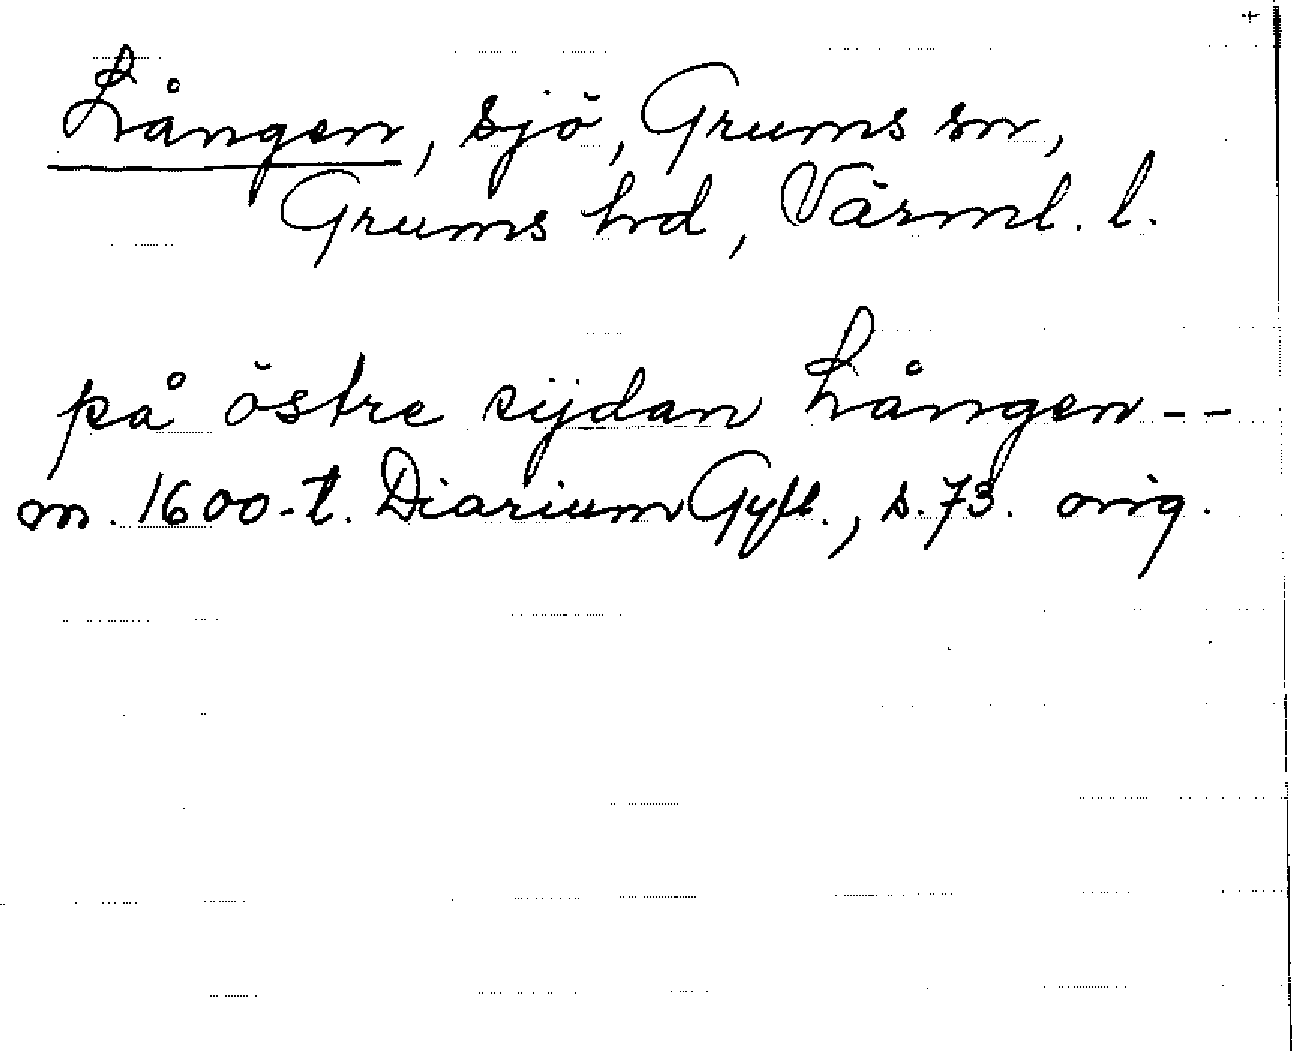 +
Lången, sjö, Grums sn,
Grums hd, Värml. l.
på östre sijdan Lången--
m. 1600-t. Diarium Gyll., s. 73. orig.